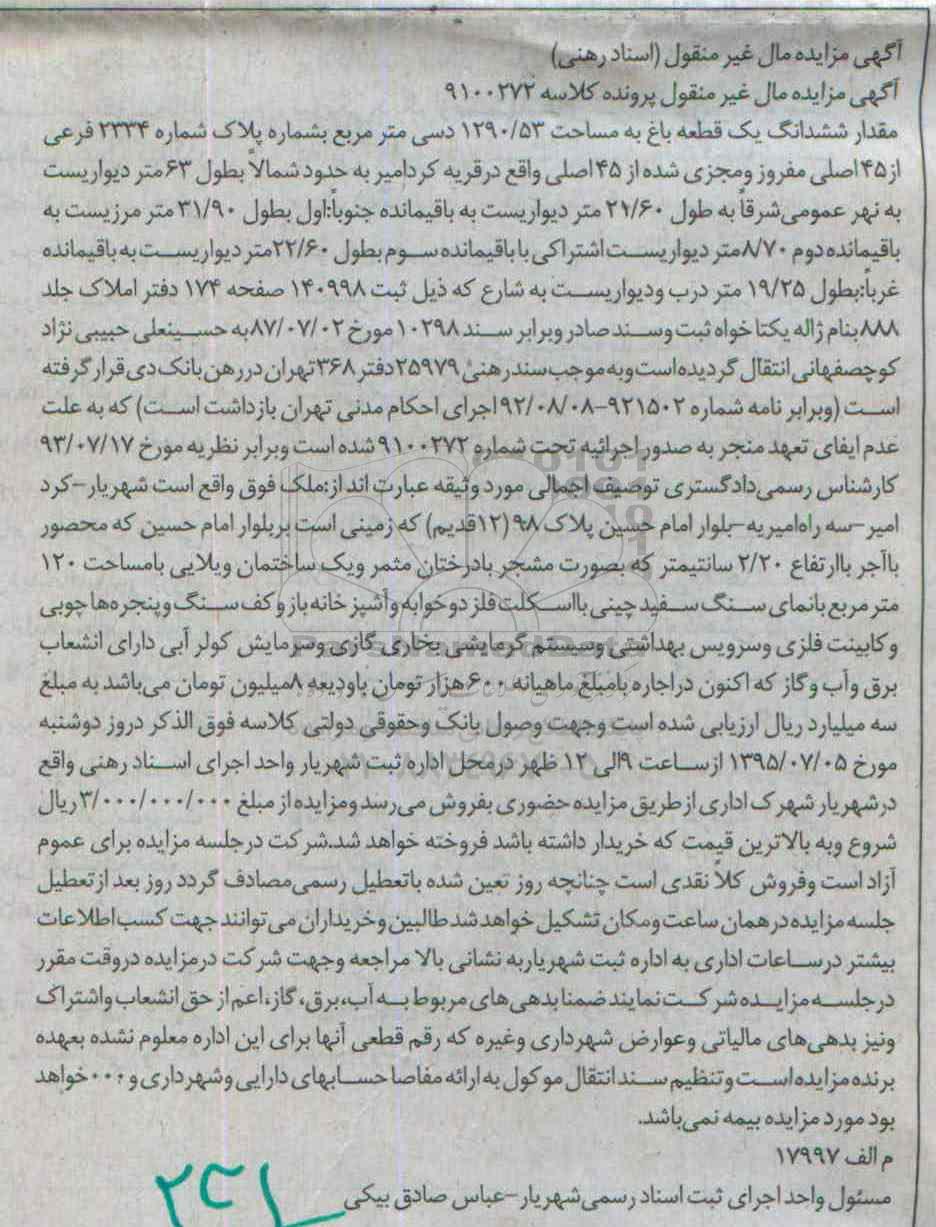 آگهی مزایده مال غیر منقول (اسناد رهنی)
آگهی مزایده مال غیر منقول پرونده کلاسه ۹۱۰۰۲۷۲
مقدار ششدانگ یک قطعه باغ به مساحت ۱۲۹۰/۵۳ دسی متر مربع بشماره پلاک شماره ۲۳۳۴ فرعی
از ۴۵ اصلی مفروز ومجزی شده از ۴۵ اصلی واقع درقریه کردامیر به حدود شمالاً بطول ۶۳ متر دیواریست
به نهر عمومی شرقاً به طول ۲۱/۶۰ متر دیواریست به باقیمانده جنوباً:اول بطول ۳۱/۹۰ متر مرزیست به
باقیمانده دوم ۸/۷۰ متر دیواریست اشتراکی با باقیمانده سوم بطول ۲۲/۶۰ متر دیواریست به باقیمانده
غرباً:بطول ۱۹/۲۵ متر درب ودیواریست به شارع که ذیل ثبت ۱۴۰۹۹۸ صفحه ۱۷۴ دفتر املاک جلد
۸۸۸ بنام ژاله یکتا خواه ثبت وسند صادر وبرابر سند ۱۰۲۹۸ مورخ ۸۷/۰۷/۰۲ به حسینعلی حبیبی نژاد
کوچصفهانی انتقال گردیده است وبه موجب سند رهنی ۲۵۹۷۹ دفتر ۳۶۸ تهران در رهن بانک دی قرار گرفته
است (وبرابر نامه شماره ۹۲۱۵۰۲-۹۲/۰۸/۰۸ اجرای احکام مدنی تهران بازداشت است) که به علت
عدم ایفای تعهد منجر به صدور اجرائیه تحت شماره ۹۱۰۰۲۷۲ شده است وبرابر نظریه مورخ ۹۳/۰۷/۱۷
کارشناس رسمی دادگستری توصیف اجمالی مورد وثیقه عبارت اند از:ملک فوق واقع است شهریار-کرد
امیر-سه راه امیریه-بلوار امام حسین پلاک ۹۸ (۱۲قدیم) که زمینی است بربلوار امام حسین که محصور
باآجر باارتفاع ۲/۲۰ سانتیمتر که بصورت مشجر بادرختان مثمر ویک ساختمان ویلایی بامساحت ۱۲۰
متر مربع بانمای سنگ سفید چینی بااسکلت فلز دو خوابه وآشپز خانه باز و کف سنگ و پنجره ها چوبی
و کابینت فلزی وسرویس بهداشتی وسیستم گرمایشی بخاری گازی وسرمایش کولر آبی دارای انشعاب
برق وآب و گاز که اکنون دراجاره بامبلغ ماهیانه ۶۰۰ هزار تومان باودیعه ۸میلیون تومان می باشد به مبلغ
سه میلیارد ریال ارزیابی شده است وجهت وصول بانک وحقوقی دولتی کلاسه فوق الذکر دروز دوشنبه
مورخ ۱۳۹۵/۰۷/۰۵ ازساعت ۹الی ۱۲ ظهر درمحل اداره ثبت شهریار واحد اجرای اسناد رهنی واقع
درشهریار شهرک اداری ازطریق مزایده حضوری بفروش می رسد ومزایده از مبلغ ۳/۰۰۰/۰۰۰/۰۰۰ ریال
شروع وبه بالاترین قیمت که خریدار داشته باشد فروخته خواهد شد.شرکت درجلسه مزایده برای عموم
آزاد است وفروش کلاً نقدی است چنانچه روز تعین شده باتعطیل رسمی مصادف گردد روز بعد ازتعطیل
جلسه مزایده در همان ساعت و مکان تشکیل خواهد شد طالبین و خریداران می توانند جهت کسب اطلاعات
بیشتر درساعات اداری به اداره ثبت شهریاربه نشانی بالا مراجعه وجهت شرکت درمزایده دروقت مقرر
درجلسه مزایده شرکت نمایند ضمنا بدهی های مربوط به آب،برق، گاز،اعم از حق انشعاب واشتراک
ونیز بدهی های مالیاتی وعوارض شهرداری وغیره که رقم قطعی آنها برای این اداره معلوم نشده بعهده
برنده مزایده است و تنظیم سند انتقال موکول به ارائه مفاصا حسابهای دارایی وشهرداری و ۰۰۰ خواهد
بود مورد مزایده بیمه نمی باشد.
م الف ۱۷۹۹۷
مسئول واحد اجرای ثبت اسناد رسمی شهریار-عباس صادق بیکی